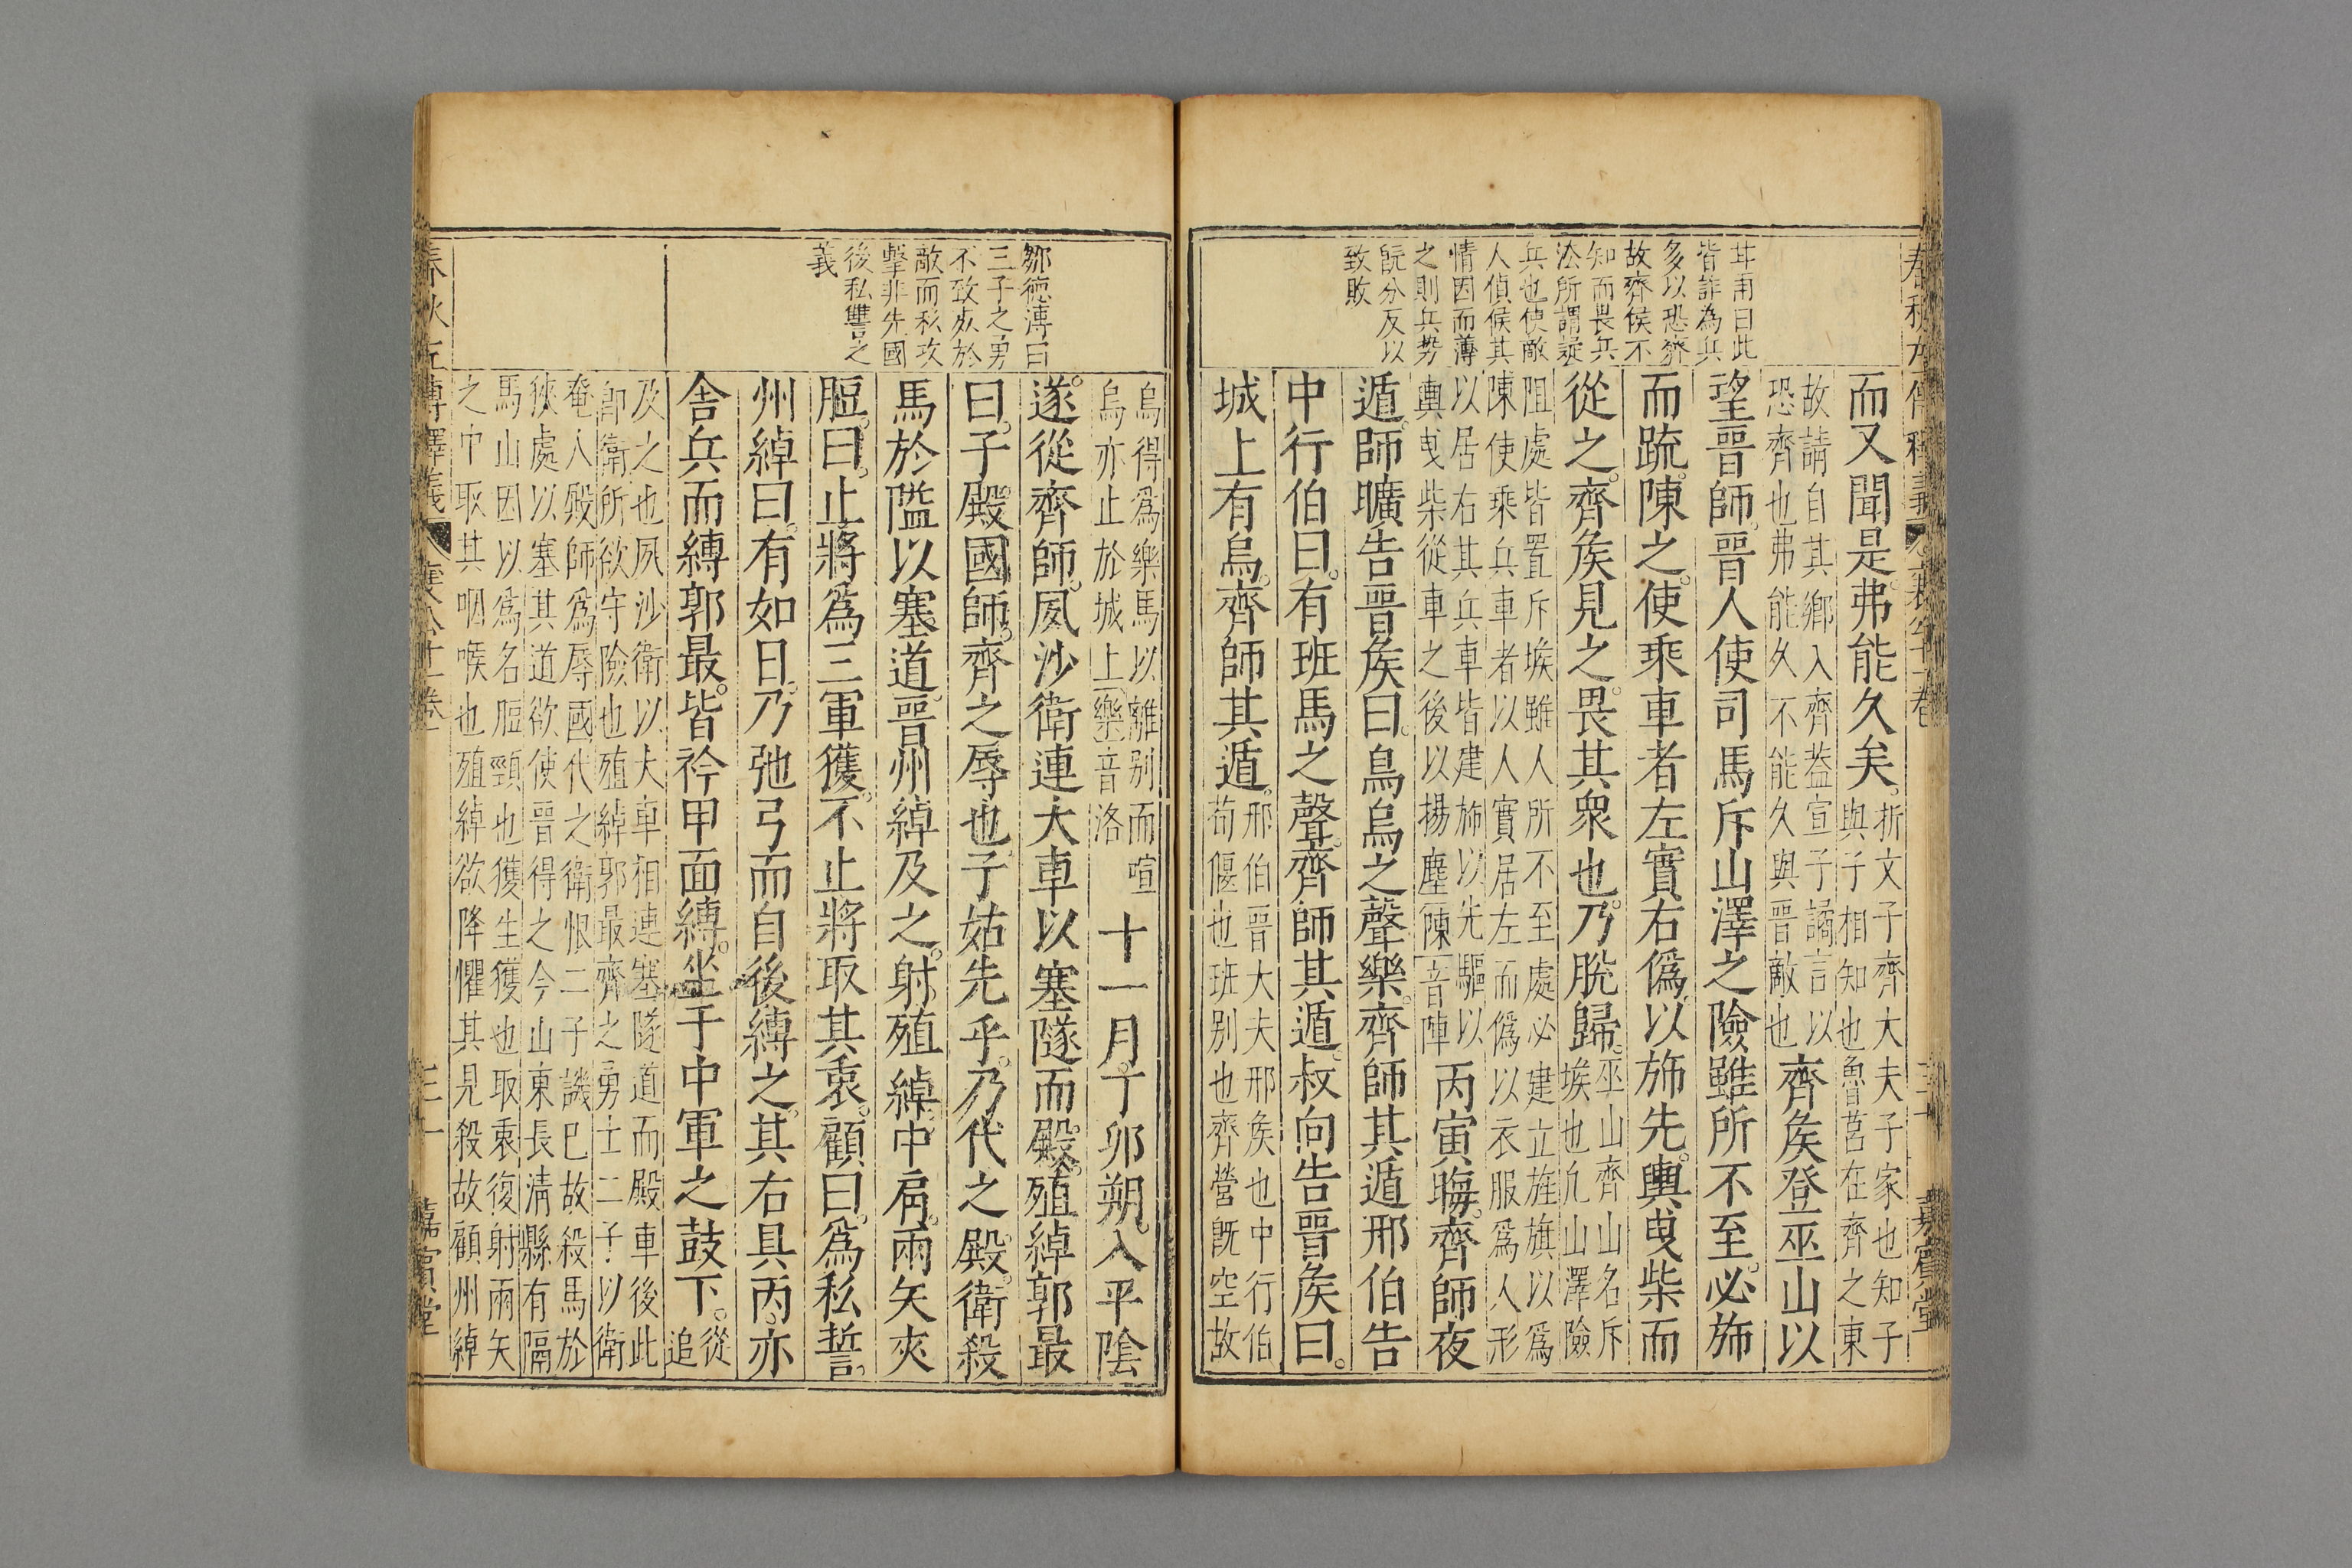 茸甫曰此
皆詐為兵
多以恐齊
故齊侯不
知而畏兵
法所謂疑
兵也使敵
人偵候其
情因而薄
之則兵勢
旣分反以
致敗
而又聞是。弗能久矣。
析文子齊大夫子家也知子
與子相知也魯莒在齊之東
故請自其鄉入齊葢宣子譎言以
恐齊也弗能久不能久與晉敵也
齊矦登巫山以
望晉師。晉人使司馬斥山澤之險雖所不至。必斾
而䟽陳之。使乘車者左實右僞以斾先。輿曳柴而
從之。齊矦見之。畏其衆也。乃脫歸。
巫山齊山名斥
堠也凢山澤險
阻處皆置斥堠雖人所不至處必建立旌旗以爲
陳使乘兵車者以人實居左而僞以衣服爲人形
以居右其兵車皆建斾以先驅以
輿曳柴從車之後以揚塵陳音陣
丙寅晦。齊師夜
遁。師曠告晉矦曰。鳥烏之聲樂。齊師其遁邢伯告
中行伯曰。有班馬之聲。齊師其遁。叔向告晉矦曰。
城上有烏。齊師其遁。
邢伯晉大夫邢矦也中行伯
荀偃也班别也齊營旣空故
烏得爲樂馬以離别而喧
烏亦止於城上樂音洛
十一月。丁卯朔。入平陰
遂從齊師。夙沙衛連大車以塞隧而殿。殖綽郭最
曰。子殿國師。齊之辱也。子姑先乎。乃代之殿。衛殺
馬於隘以塞道。晉州綽及之。射殖綽。中肩。兩矢夾
脰。曰。止將爲三軍獲。不止將取其衷。顧曰。爲私誓。
州綽曰。有如日。乃弛弓而自後縛之。其右具丙。亦
舎兵而縛郭最。皆衿甲面縛。坐于中軍之鼓下。
從
追
及之也夙沙衛以大車相連塞隧道而殿車後此
卽衛所欲守險也殖綽郭最齊之勇士二子以衛
奄人殿師爲辱國代之衛恨二子譏巳故殺馬於
狹處以塞其道欲使晉得之今山東長清縣有隔
馬山因以爲名脰頸也獲生獲也取衷復射兩矢
之中取其咽喉也殖綽欲降懼其見殺故顧州綽
鄒德溥曰
三子之勇
不致死於
敵而私攻
擊非先國
後私讐之
義